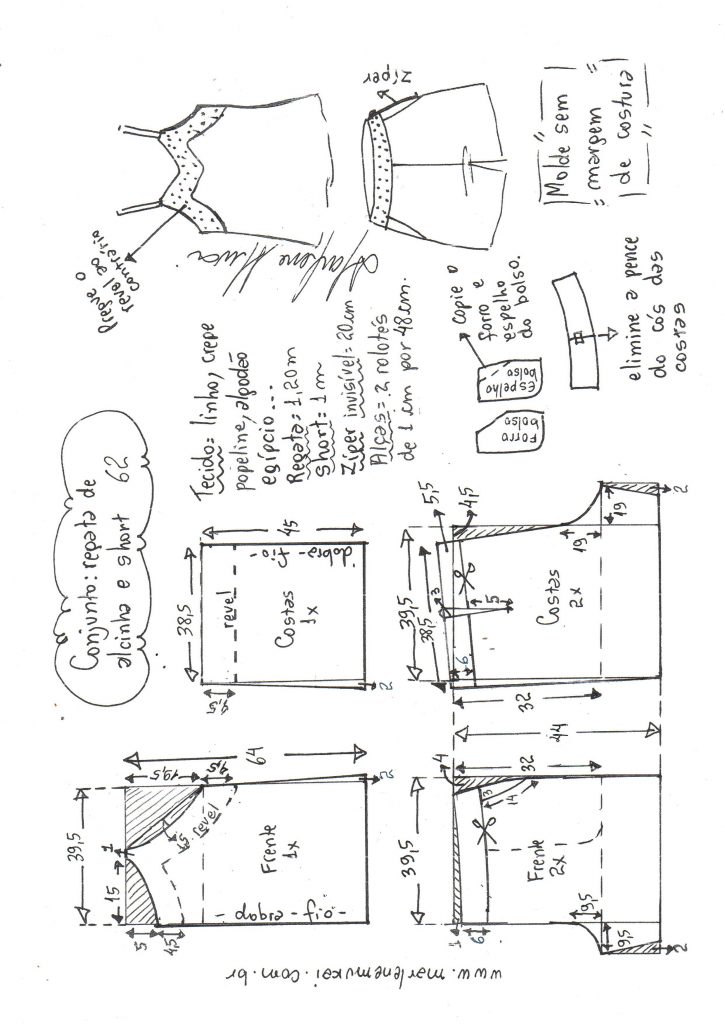 Conjunto: regata de
alcinha e short 62
Tecido= linho, crepe
popeline, algodão
egípcio...
Regata= 1,20m
Short= 1m
Zíper invisível= 20cm
Alças= 2 rolotês
de 1 cm por 48cm.
Pregue o
revel ao
contrário
Marlene Mukai
zíper
Molde sem
margem
de costura
39,5
15
1
19,5
5
4,5
4,5
4,5
revel
Frente
1x
dobra - fio -
64
2
38,5
4,5
revel
Costas
1x
dobra - fio -
45
2
39,5
4
1
6
3
14
Frente
2x
32
44
9,5
9,5
2
39,5
38,5
5,5
4,5
3
6
5
Costas
2x
32
19
19
2
Forro
bolso
Espelho
bolso
copie o
forro e
espelho
do bolso.
elimine a pence
do cós das
costas
www.marlenemukai.com.br